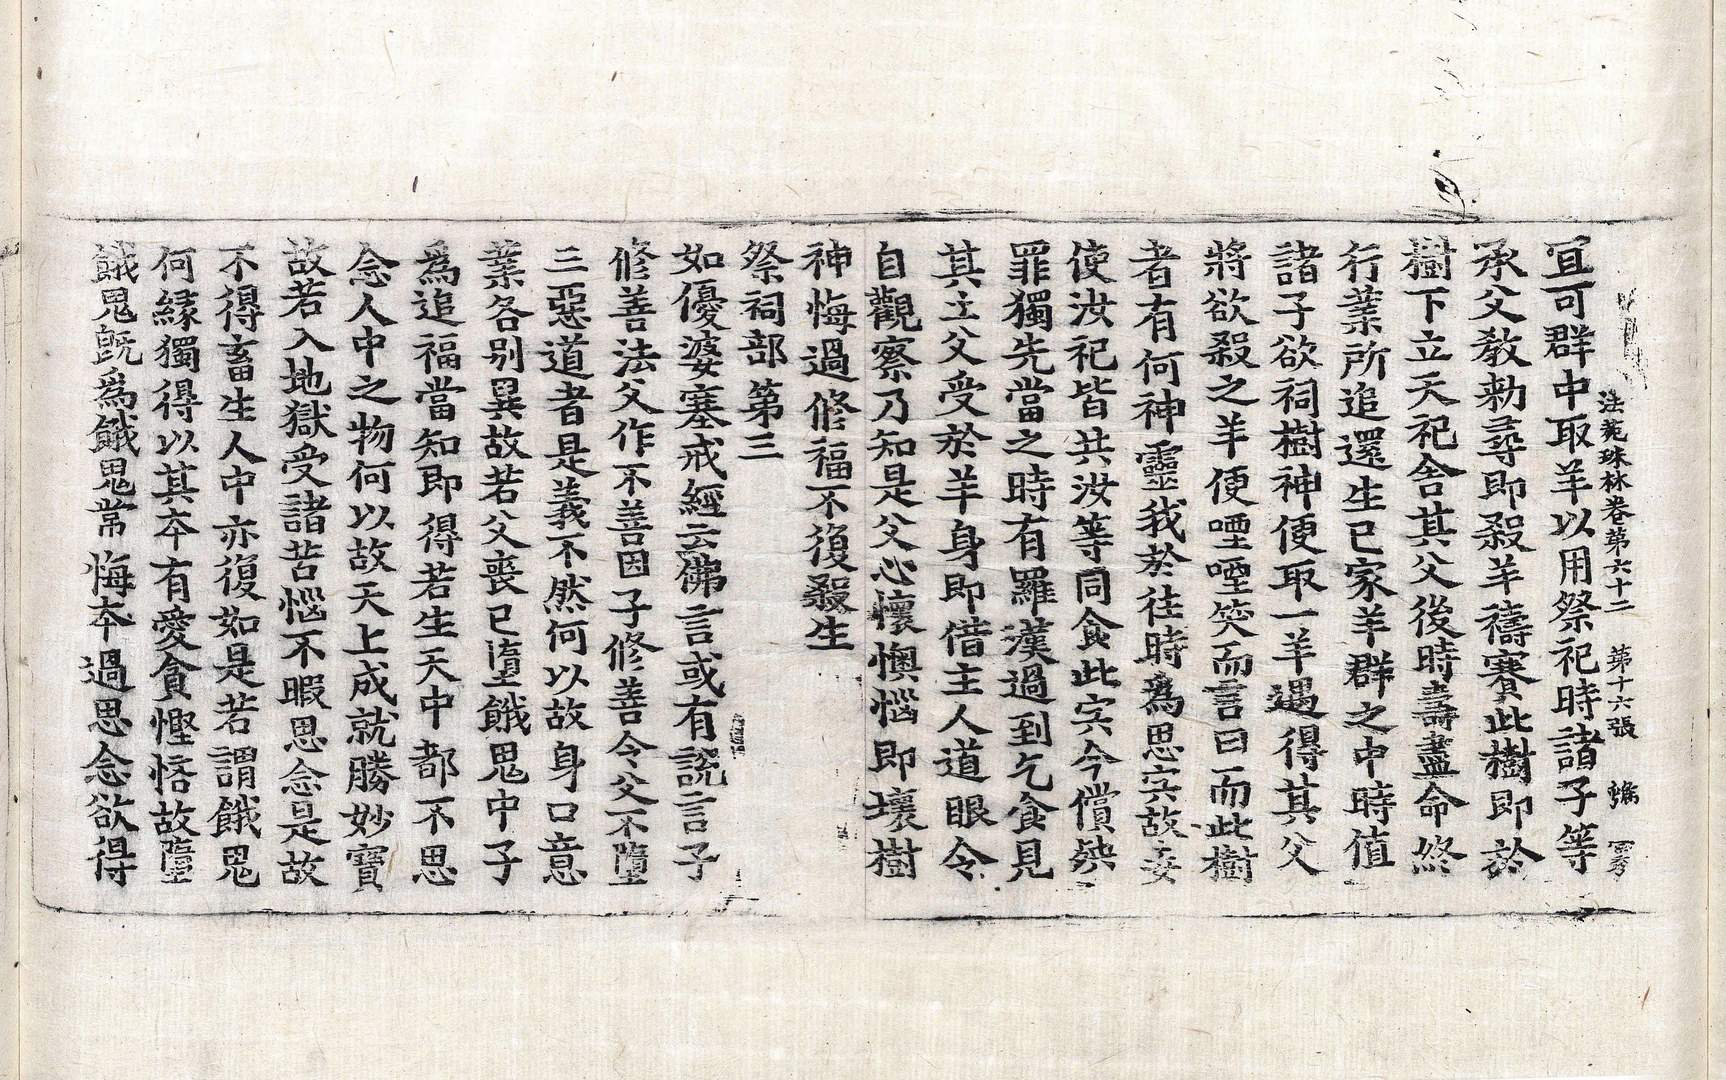 法苑珠林卷第六十二　第十六張
冝可群中取羊以用祭祀時諸子等
承父教勑尋即殺羊禱賽此樹即於
樹下立天祀舍其父後時壽盡命終
行業所追還生已家羊群之中時值
諸子欲祠樹神便取一羊遇得其父
將欲殺之羊便㗌㗌笑而言曰而此樹
者有何神靈我於往時為思宍故妄
使汝祀皆共汝等同食此宍今償殃
罪獨先當之時有羅漢過到乞食見
其亡父受於羊身即借主人道眼令
自觀察乃知是父心懷懊惱即壞樹
神悔過修福不復殺生
祭祠部第三
如優婆塞戒經云佛言或有說言子
修善法父作不善因子修善令父不墮
三惡道者是義不然何以故身口意
業各別異故若父喪已墮餓鬼中子
為追福當知即得若生天中都不思
念人中之物何以故天上成就勝妙寶
故若入地獄受諸苦惱不暇思念是故
不得畜生人中亦復如是若謂餓鬼
何緣獨得以其夲有愛貪慳悋故墮
餓鬼既為餓鬼常悔夲過思念欲得